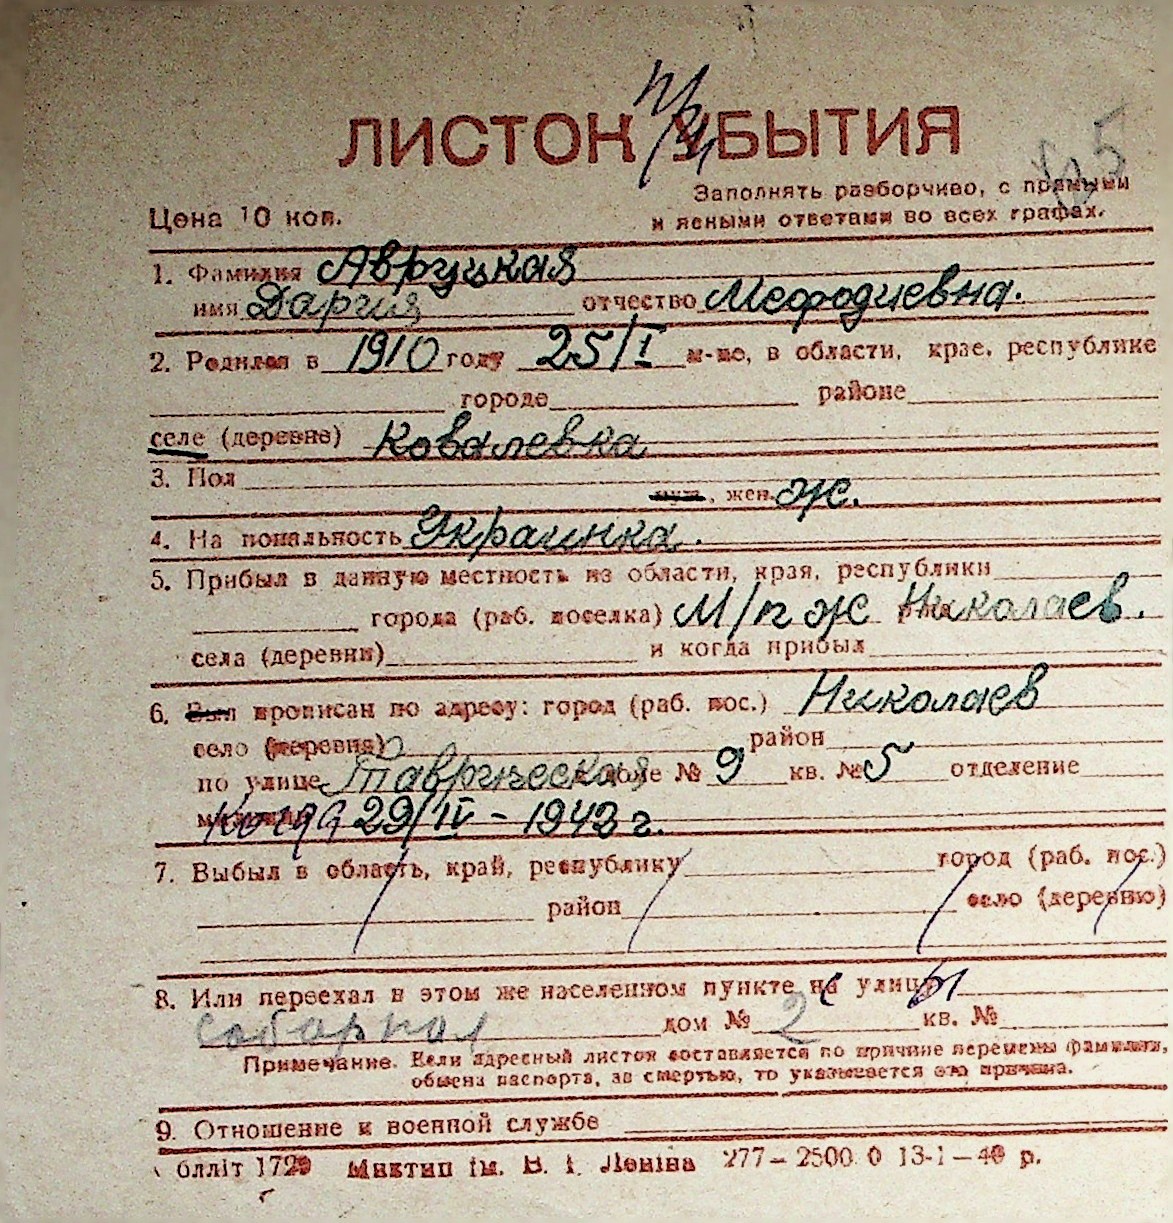 ЛИСТОК ПРИБЫТИЯ
5
Заполнять разборчиво, с прямыми
Цена 10 коп.
и ясными ответами во всех графах.
1. Фамилия Авруцкая
имя Дария отчество Мефодиевна.
2. Родился в 1910 году 25/I м-це, в области, крае, республике
городе районе
селе (деревне) Ковалевка
3. Пол муж., жен. ж.
4. Национальность Украинка.
5. Прибыл в данную местность из области, края, республики
города (раб. поселка) М/п ж Николаев.
села (деревни) и когда прибыл
6. Был прописан по адресу: город (раб. пос.) Николаев
село (деревня) район
по улице Таврическая доме № 9 кв. № 5 отделение
милиции Когда 29/IV - 1942 г.
7. Выбыл в область, край, республику город (раб. пос.)
район село (деревню)
8. Или переехал в этом же населенном пункте с улицы
Соборная дом № 2 кв. №
Примечание. Если адресный листок составляется по причине перемены фамилии,
обмена паспорта, за смертью, то указывается эта причина.
9. Отношение к военной службе
блліт 1729 Миктип ім. В. І. Леніна 277—2500 0 13-1—40 р.